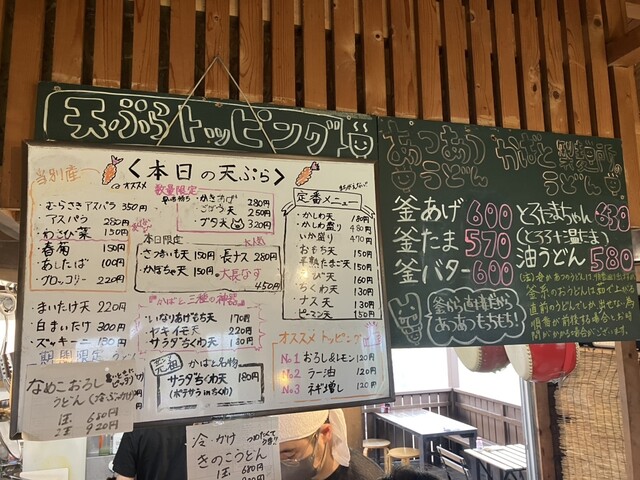 天ぷらトッピング
<本日の天ぷら>
当別産
オススメ
むらさきアスパラ 350円
アスパラ 280円
わさび菜 150円
春菊 150円
あしたば 100円
ブロッコリー 220円
まいたけ天 220円
白まいたけ 300円
ズッキーニ 130円
期間限定
なめこおろし
うどん(冷ぶっかけ)
920円
数量限定
かきあげ 280円
ごぼう天 250円
ブタ天 320円
本日限定
さつまいも天 150円
かぼちゃ天 150円
長ナス 280円
大長なす
450円
かばと三種の神器
いなりあげもち天 170円
ヤキイモ天 220円
サラダちくわ天 180円
元祖
かばと名物
サラダちくわ天 180円
(ポテサラinちくわ)
定番メニュー
かしわ天 180円
かしわ盛り 480円
いか盛り 470円
おもち天 150円
半熟たまご天 150円
えび天 160円
ちくわ天 130円
ナス天 130円
ピーマン天 150円
オススメトッピング
No1 おろし&レモン 120円
No.2 ラー油 120円
No.3 ネギ増し 120円
冷・かけ
きのこうどん
あつあつ
うどん
かばと製麺所
うどん
釜あげ 600
釜たま 570
釜バター 600
とろたまちゃん 630
(とろろ+温たま)
油うどん 580
釜から直接だから
あつあつもちもち!